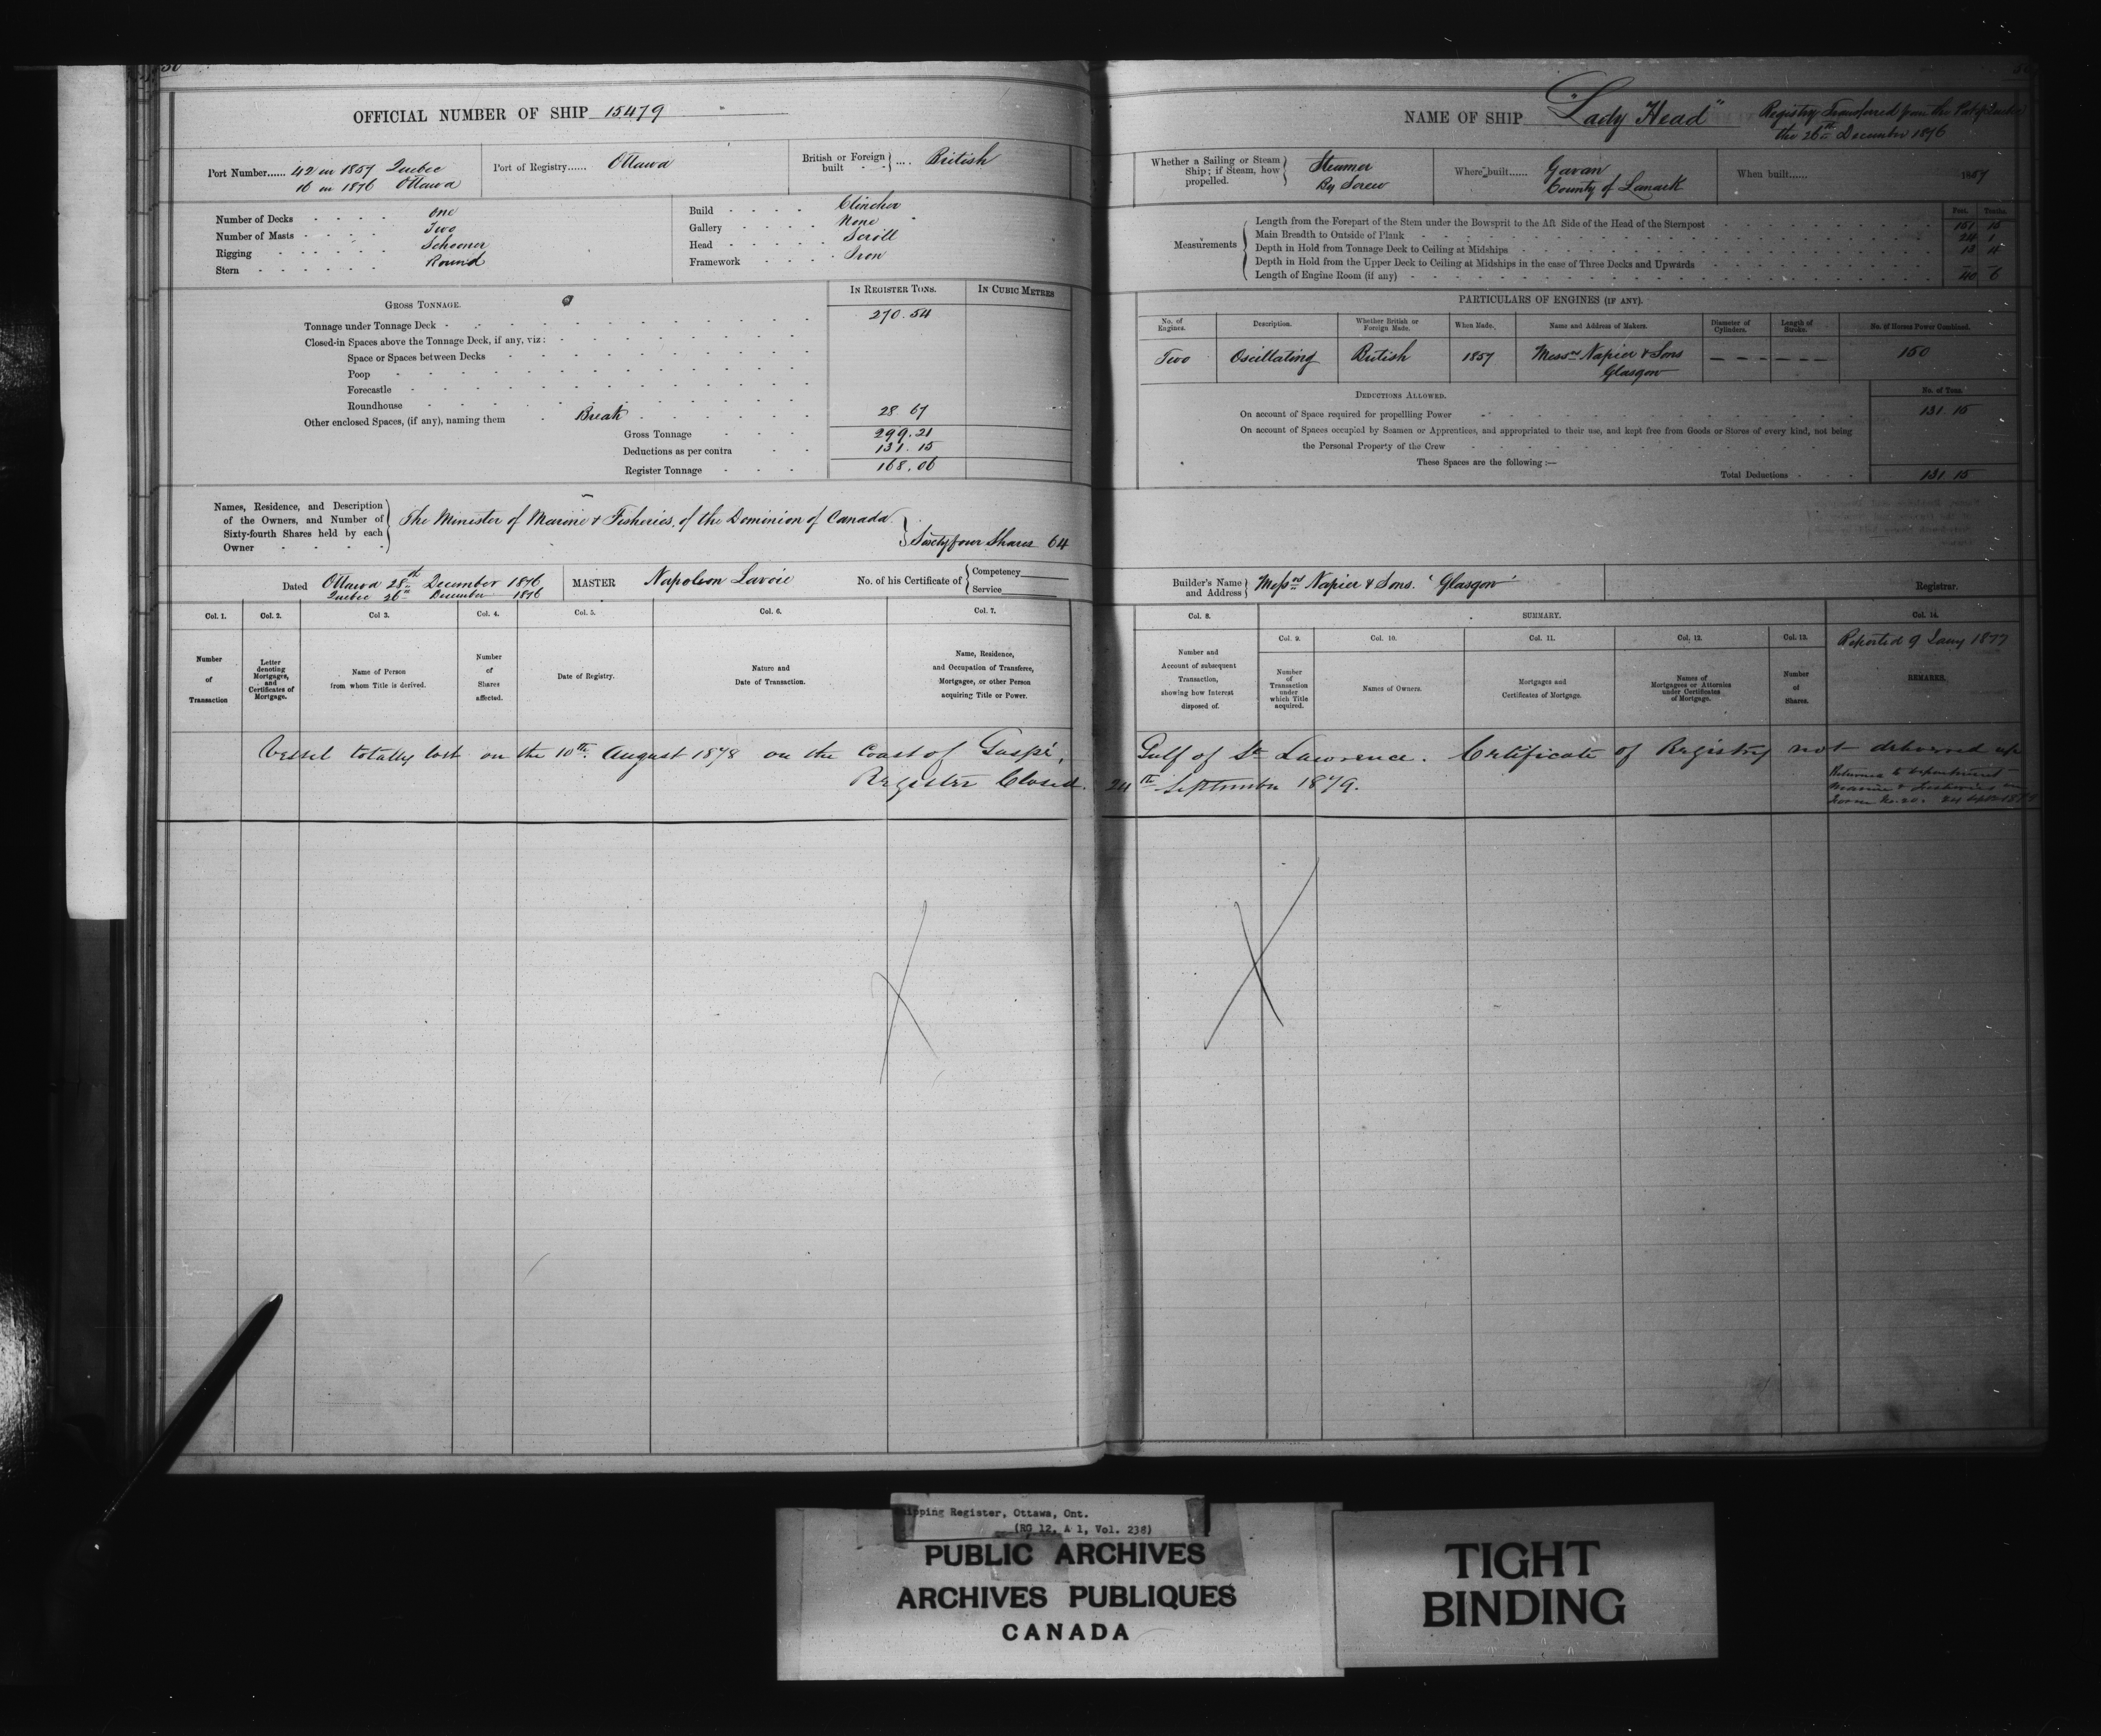 OFFICIAL NUMBER OF SHIP 15479
Port Number...... 42 in 1857 Quebec
16 in 1876 Ottawa
Port of Registry...... Ottawa
British or Foreign built .... British
Number of Decks One
Number of Masts Two
Rigging Schooner
Stern Round
Build Clincher
Gallery None
Head Scroll
Framework Iron
GROSS TONNAGE.
IN REGISTER TONS.
IN CUBIC METRES
Tonnage under Tonnage Deck 270.54
Closed-in Spaces above the Tonnage Deck, if any, viz:
Space or Spaces between Decks
Poop
Forecastle
Roundhouse
Other enclosed Spaces, (if any), naming them Break 28 67
Gross Tonnage 299.21
Deductions as per contra 131.15
Register Tonnage 168.06
Names, Residence, and Description
of the Owners, and Number of
Sixty-fourth Shares held by each
Owner
The Minister of Marine & Fisheries, of the Dominion of Canada
Sixty four Shares 64
Dated Ottawa 28th December 1876
Quebec 26th December 1876
MASTER Napoleon Lavoie
No. of his Certificate of { Competency
Service
Col. 1.
Number
of
Transaction
Col. 2.
Letter
denoting
Mortgages,
and
Certificates of
Mortgage.
Col 3.
Name of Person
from whom Title is derived.
Col. 4.
Number
of
Shares
affected.
Col. 5.
Date of Registry.
Col. 6.
Nature and
Date of Transaction.
Col. 7.
Name, Residence,
and Occupation of Transferee,
Mortgagee, or other Person
acquiring Title or Power.
Vessel totally lost on the 10th August 1878 on the Coast of Gaspé,
Register Closed.
NAME OF SHIP "Lady Head"
Registry Transferred from the Port of Quebec
the 26th December 1876
Whether a Sailing or Steam
Ship; if Steam, how
propelled.
Steamer
By Screw
Where built...... Govan
County of Lanark
When built...... 1857
Measurements
Feet. Tenths.
Length from the Forepart of the Stem under the Bowsprit to the Aft Side of the Head of the Sternpost 151 15
Main Breadth to Outside of Plank 24 1
Depth in Hold from Tonnage Deck to Ceiling at Midships 13
Depth in Hold from the Upper Deck to Ceiling at Midships in the case of Three Decks and Upwards
Length of Engine Room (if any) 40 6
PARTICULARS OF ENGINES (IF ANY).
No. of
Engines.
Description.
Whether British or
Foreign Made.
When Made.
Name and Address of Makers.
Diameter of
Cylinders.
Length of
Stroke.
No. of Horses Power Combined.
Two Oscillating British 1857 Messrs Napier & Sons 150
Glasgow
DEDUCTIONS ALLOWED.
No. of Tons.
On account of Space required for propelling Power 131.15
On account of Spaces occupied by Seamen or Apprentices, and appropriated to their use, and kept free from Goods or Stores of every kind, not being
the Personal Property of the Crew
These Spaces are the following:—
Total Deductions 131 15
Builder's Name
and Address
Messrs Napier & Sons. 'Glasgow'
Registrar.
Col. 8.
Number and
Account of subsequent
Transaction,
showing how Interest
disposed of.
SUMMARY.
Col. 9.
Number
of
Transaction
under
which Title
acquired.
Col. 10.
Names of Owners.
Col. 11.
Mortgages and
Certificates of Mortgage.
Col. 12.
Names of
Mortgagees or Attornies
under Certificates
of Mortgage.
Col. 13.
Number
of
Shares.
Col. 14.
Reported 9 Jany 1877
REMARKS.
Gulf of St Lawrence. Certificate of Registry not delivered up
24th September 1879.
Returned to department
Marine & Fisheries in
Form No. 20. 24 Sept
Shipping Register, Ottawa, Ont.
(RG 12, A 1, Vol. 238)
PUBLIC ARCHIVES
ARCHIVES PUBLIQUES
CANADA
TIGHT
BINDING